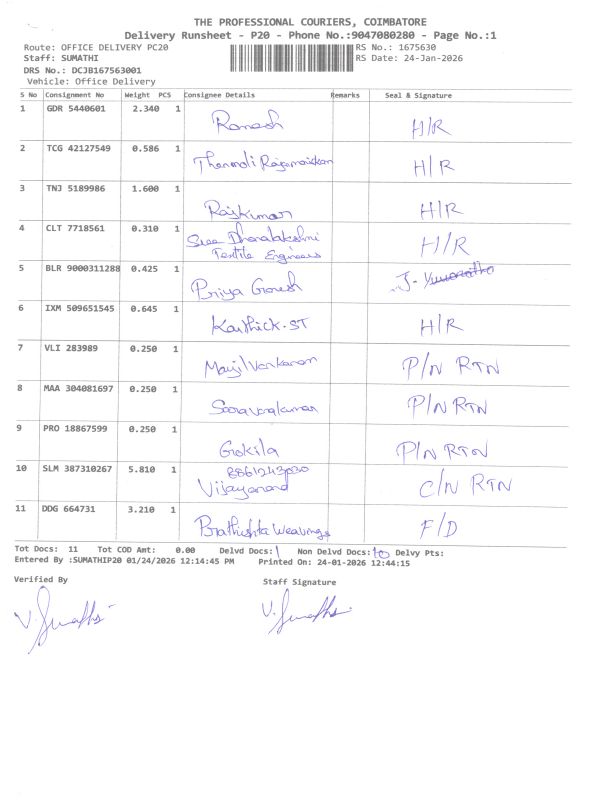 THE PROFESSIONAL COURIERS, COIMBATORE
Delivery Runsheet - P20 - Phone No.:9047080280 - Page No.:1
Route: OFFICE DELIVERY PC20 RS No.: 1675630
Staff: SUMATHI RS Date: 24-Jan-2026
DRS No.: DCJB167563001
Vehicle: Office Delivery
S No Consignment No Weight PCS Consignee Details Remarks Seal & Signature
1 GDR 5440601 2.340 1 Ramesh H/R
2 TCG 42127549 0.586 1 H/R
3 TNJ 5189986 1.600 1 Rajkumar H/R
4 CLT 7718561 0.310 1 Sree Dhanalakshmi H/R
Textile Engineers
5 BLR 9000311288 0.425 1 Priya Ganesh J.
6 IXM 509651545 0.645 1 Karthick.ST H/R
7 VLI 283989 0.250 1 P/N RTN
8 MAA 304081697 0.250 1 Saravanakumar P/N RTN
9 PRO 18867599 0.250 1 Gokila P/N RTN
10 SLM 387310267 5.810 1 8861243030 C/N RTN
Vijayanand
11 DDG 664731 3.210 1 Prathishta Weavings F/D
Tot Docs: 11 Tot COD Amt: 0.00 Delvd Docs: 1 Non Delvd Docs: 10 Delvy Pts:
Entered By :SUMATHIP20 01/24/2026 12:14:45 PM Printed On: 24-01-2026 12:44:15
Verified By Staff Signature
V. Sumathi V. Sumathi